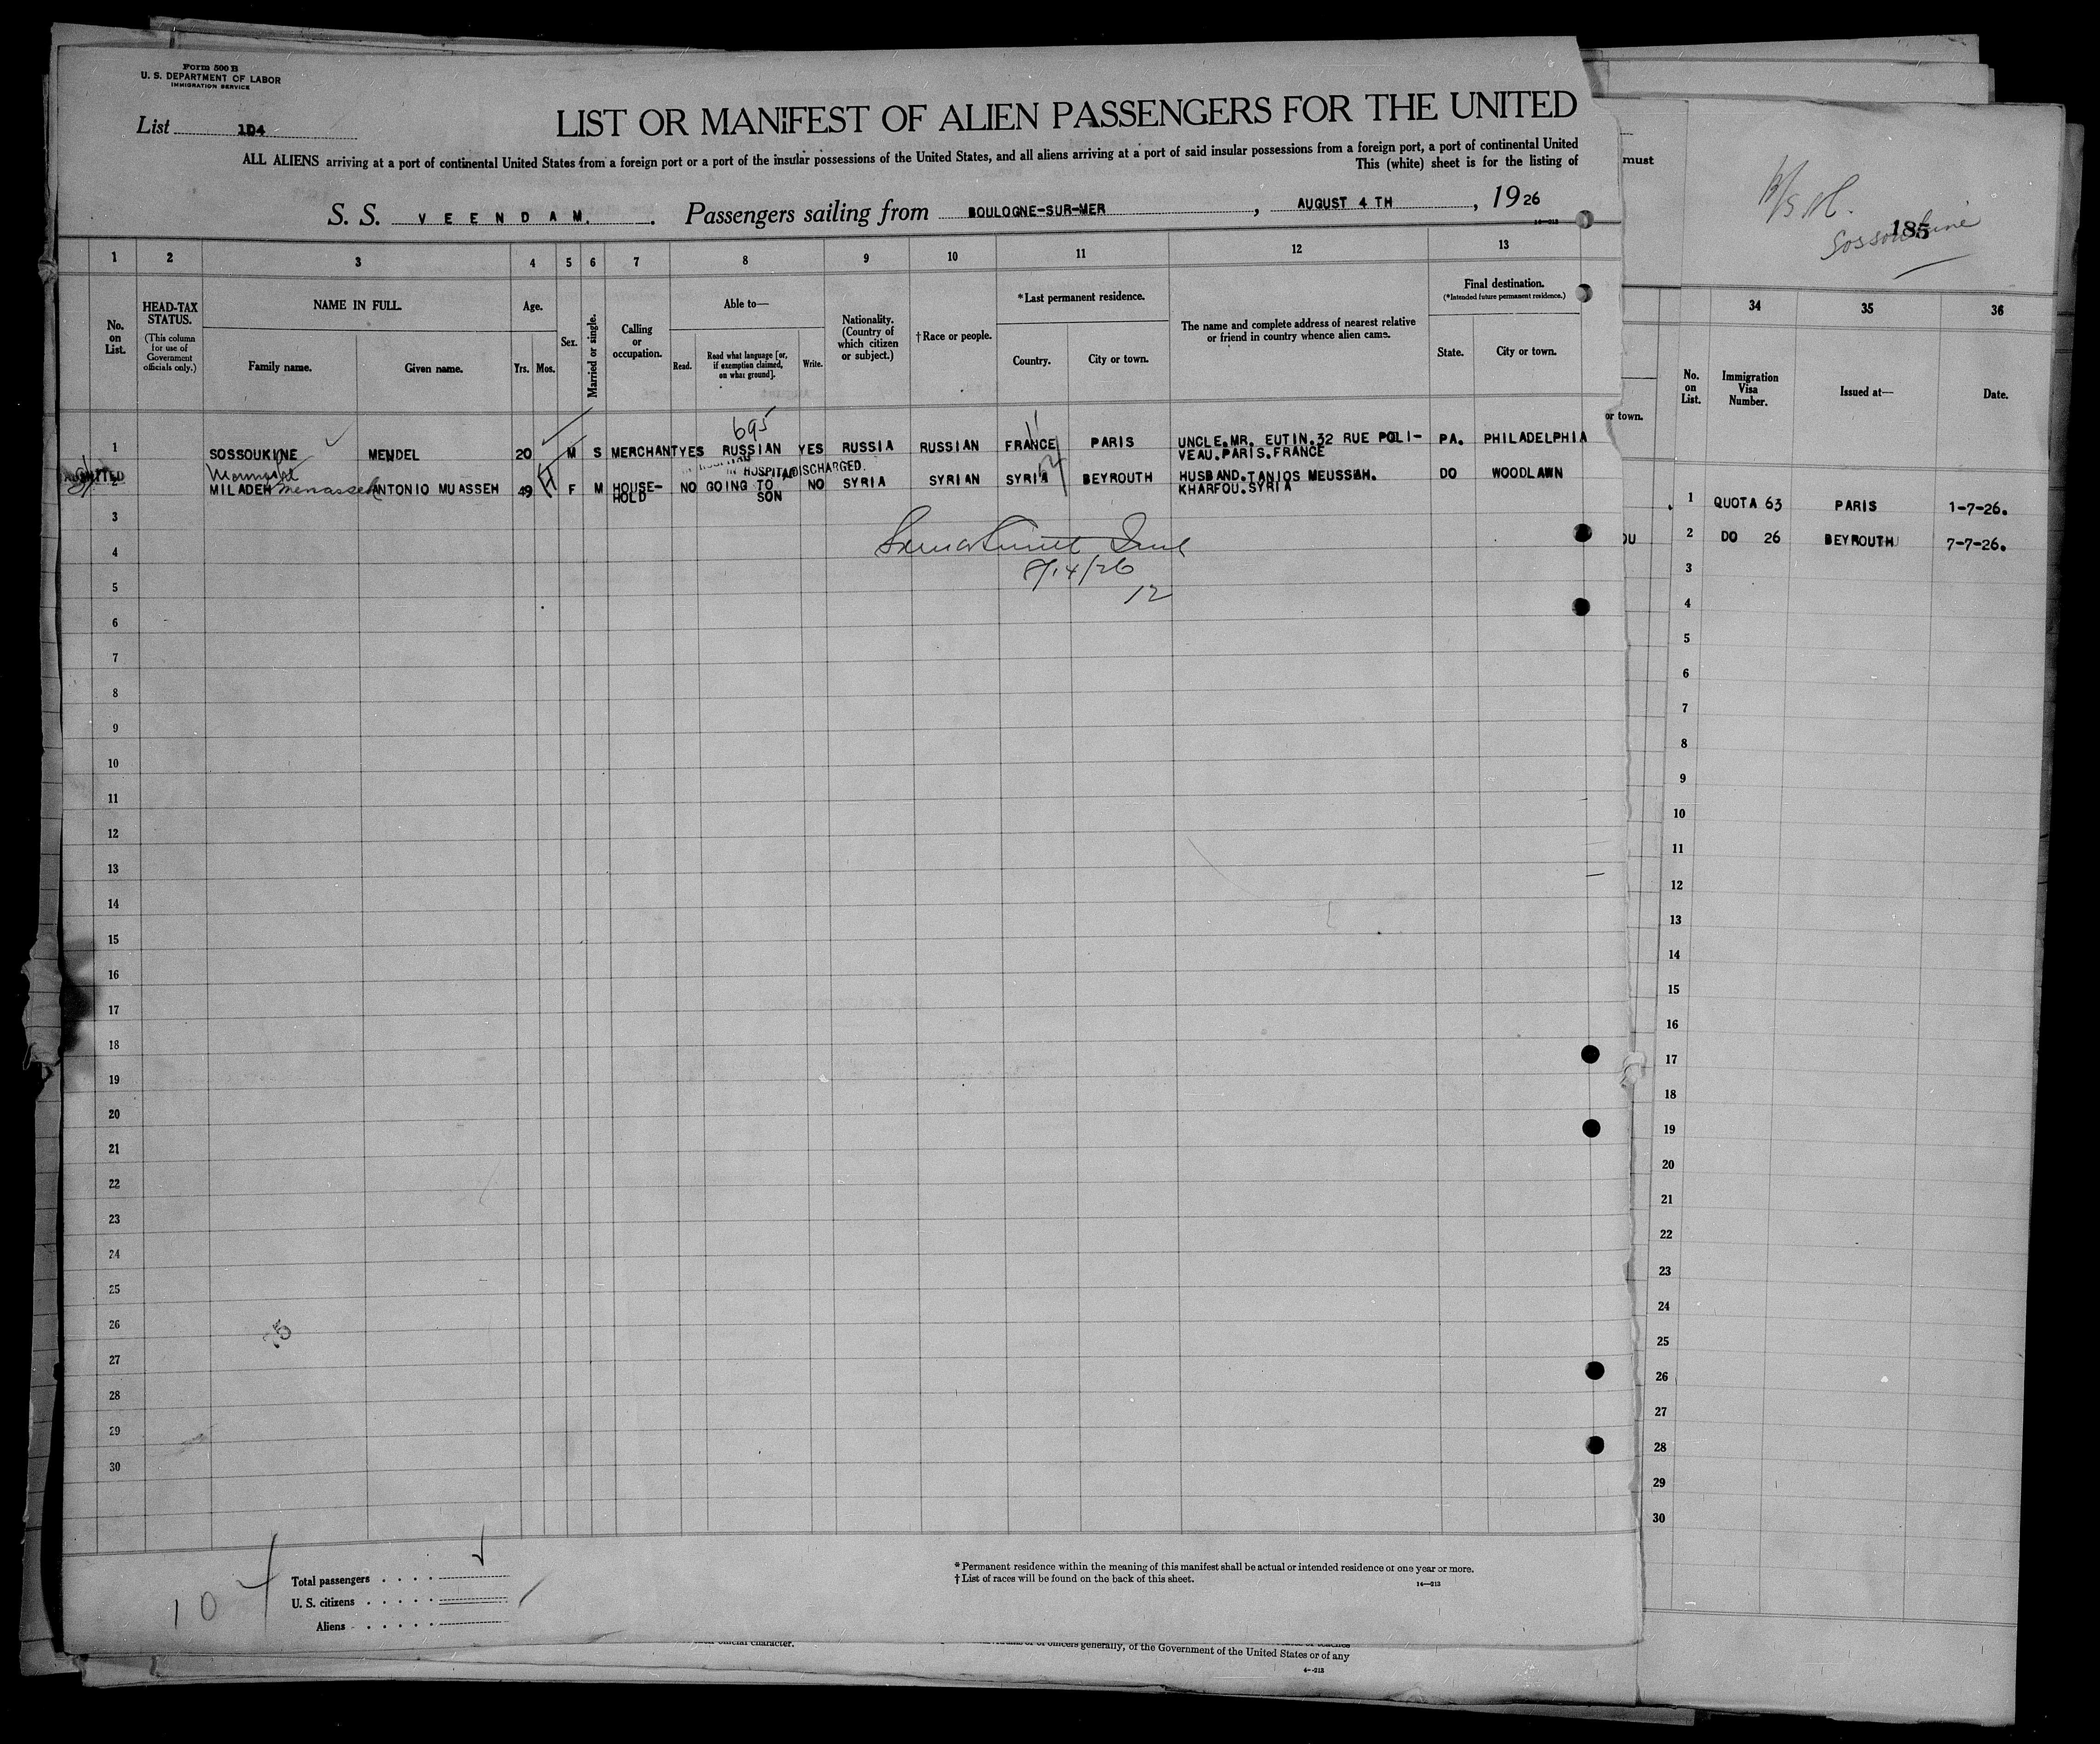 Form 500 B
U. S. DEPARTMENT OF LABOR
IMMIGRATION SERVICE
List 104
LIST OR MANIFEST OF ALIEN PASSENGERS FOR THE UNITED
ALL ALIENS arriving at a port of continental United States from a foreign port or a port of the insular possessions of the United States, and all aliens arriving at a port of said insular possessions from a foreign port, a port of continental United
This (white) sheet is for the listing of
must
S. S. VEENDAM. Passengers sailing from BOULOGNE-SUR-MER, AUGUST 4 TH, 1926
185
Sossoukine
1 2 3 4 5 6 7 8 9 10 11 12 13
34 35 36
No. on List.
HEAD-TAX STATUS.
(This column for use of Government officials only.)
NAME IN FULL.
Family name. Given name.
Age.
Yrs. Mos.
Sex.
Married or single.
Calling or occupation.
Able to—
Read. Read what language [or, if exemption claimed, on what ground]. Write.
Nationality. (Country of which citizen or subject.)
†Race or people.
*Last permanent residence.
Country. City or town.
The name and complete address of nearest relative or friend in country whence alien came.
Final destination.
(*Intended future permanent residence.)
State. City or town.
or town.
No. on List.
Immigration Visa Number.
Issued at—
Date.
695
1 SOSSOUKINE MENDEL 20 M S MERCHANT YES RUSSIAN YES RUSSIA RUSSIAN FRANCE PARIS UNCLE.MR. EUTIN.32 RUE POLI-VEAU.PARIS.FRANCE PA. PHILADELPHIA
IN HOSPITAL DISCHARGED.
ADMITTED
2 MILADEH Menasseh ANTONIO MUASSEH 49 F M HOUSE-HOLD NO GOING TO SON NO SYRIA SYRIAN SYRIA BEYROUTH HUSBAND.TANIOS MEUSSEH. KHARFOU.SYRIA DO WOODLAWN
1 QUOTA 63 PARIS 1-7-26.
OU 2 DO 26 BEYROUTH 7-7-26.
8/14/26
12
3
4
5
6
7
8
9
10
11
12
13
14
15
16
17
18
19
20
21
22
23
24
25
26
27
28
29
30
3
4
5
6
7
8
9
10
11
12
13
14
15
16
17
18
19
20
21
22
23
24
25
26
27
28
29
30
104
Total passengers
U. S. citizens
Aliens
* Permanent residence within the meaning of this manifest shall be actual or intended residence of one year or more.
† List of races will be found on the back of this sheet.
14—213
official character.
officers generally, of the Government of the United States or of any